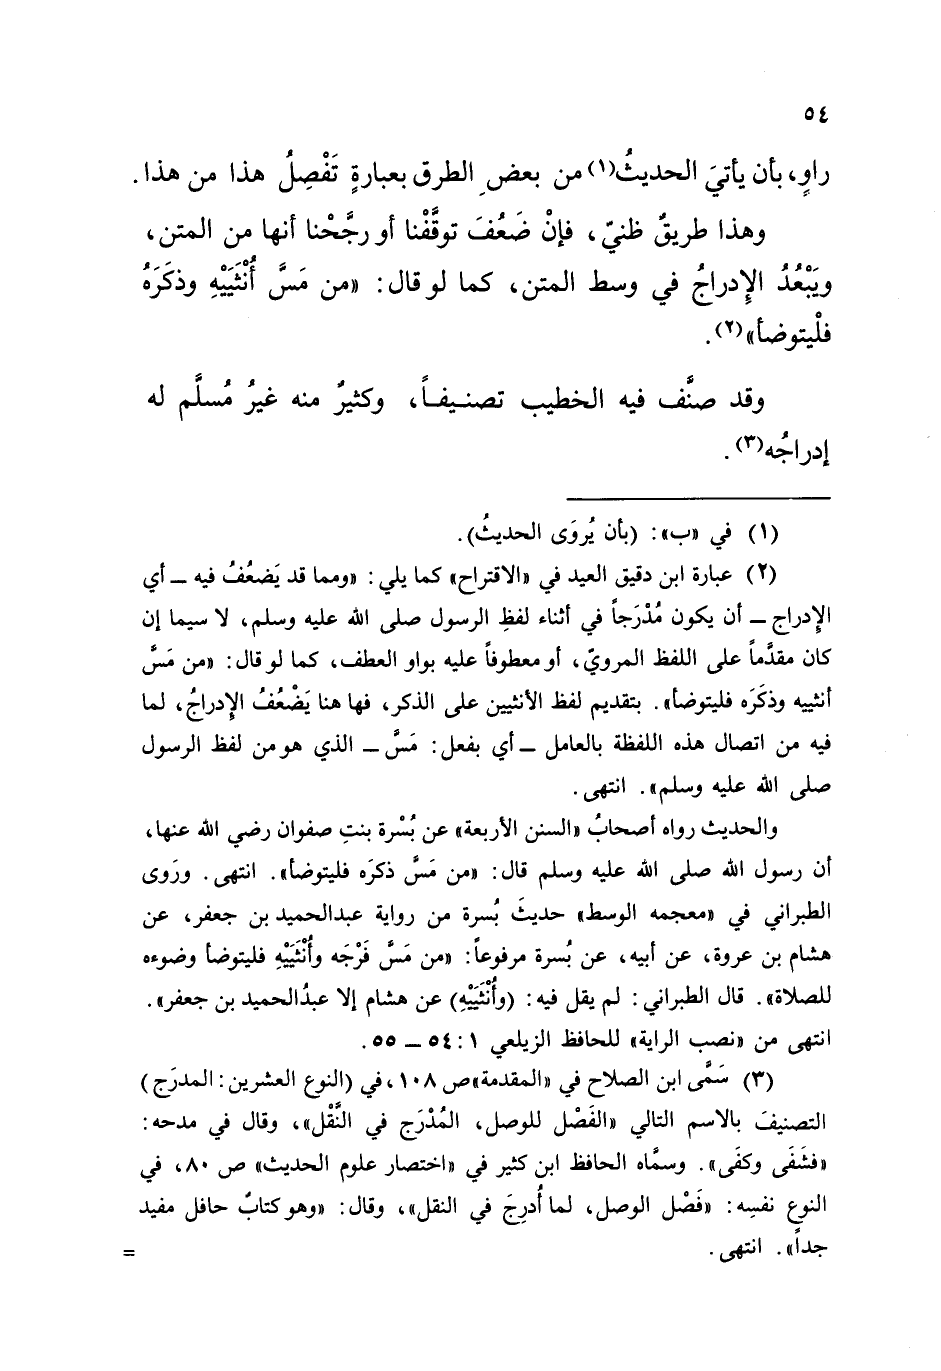 ٥٤
راوٍ، بأن يأتيَ الحديثُ(١) من بعضِ الطرق بعبارةٍ تَفْصِلُ هذا من هذا.
وهذا طريقٌ ظنيّ، فإنْ ضَعُفَ توقَّفْنا أو رجَّحْنا أنها من المتن،
ويَبْعُدُ الإِدراجُ في وسط المتن، كما لو قال: «من مَسَّ أُنْثَيَيْهِ وذكَرَهُ
فلْيتوضأ»(٢).
وقد صنَّف فيه الخطيب تصنـيفـاً، وكثيرٌ منه غيرُ مُسلَّم له
إدراجُه(٣).
(١) في «ب»: (بأن يُروَى الحديثُ).
(٢) عبارة ابن دقيق العيد في «الاقتراح» كما يلي: «ومما قد يَضعُفُ فيه ــ أي
الإِدراج ــ أن يكون مُدْرَجاً في أثناء لفظِ الرسول صلى الله عليه وسلم، لا سيما إن
كان مقدَّماً على اللفظ المرويّ، أو معطوفاً عليه بواو العطف، كما لو قال: «من مَسَّ
أنثييه وذكَرَه فليتوضأ». بتقديم لفظ الأنثيين على الذكر، فها هنا يَضْعُفُ الإِدراجُ، لما
فيه من اتصال هذه اللفظة بالعامل ــ أي بفعل: مَسَّ ــ الذي هو من لفظ الرسول
صلى الله عليه وسلم». انتهى.
والحديث رواه أصحابُ «السنن الأربعة» عن بُسْرة بنتِ صفوان رضي الله عنها،
أن رسول الله صلى الله عليه وسلم قال: «من مَسَّ ذكرَه فليتوضأ». انتهى. ورَوى
الطبراني في «معجمه الوسط» حديثَ بُسرة من رواية عبدالحميد بن جعفر، عن
هشام بن عروة، عن أبيه، عن بُسرة مرفوعاً: «من مَسَّ فَرْجَه وأُنْثَيَيْهِ فليتوضأ وضوءه
للصلاة». قال الطبراني: لم يقل فيه: (وأُنْثَيَيْهِ) عن هشام إلا عبدُالحميد بن جعفر».
انتهى من «نصب الراية» للحافظ الزيلعي ١:٥٤ ــ ٥٥.
(٣) سَمَّى ابن الصلاح في «المقدمة» ص ١٠٨، في (النوع العشرين: المدرَج)
التصنيفَ بالاسم التالي «الفَصْل للوصل، المُدْرَج في النَّقْل»، وقال في مدحه:
«فشَفَى وكفَى». وسمَّاه الحافظ ابن كثير في «اختصار علوم الحديث» ص ٨٠، في
النوع نفسِه: «فَصْل الوصل، لما أُدرِجَ في النقل»، وقال: «وهو كتابٌ حافل مفيد
جداً». انتهى. =